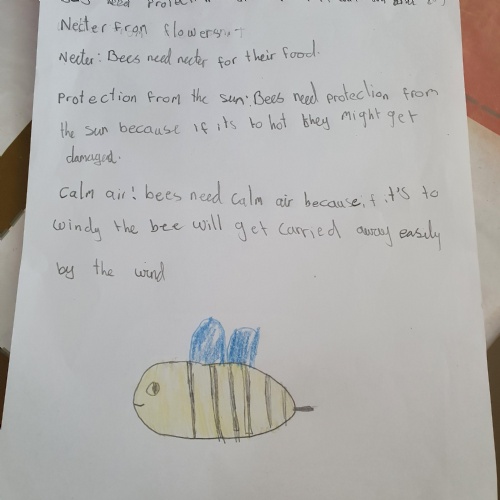 need protection
Necter from flowers.
Necter: Bees need necter for their food.
Protection from the sun: Bees need protection from
the sun because if its to hot they might get
damaged.
Calm air: bees need calm air because if it's to
windy the bee will get carried away easily
by the wind